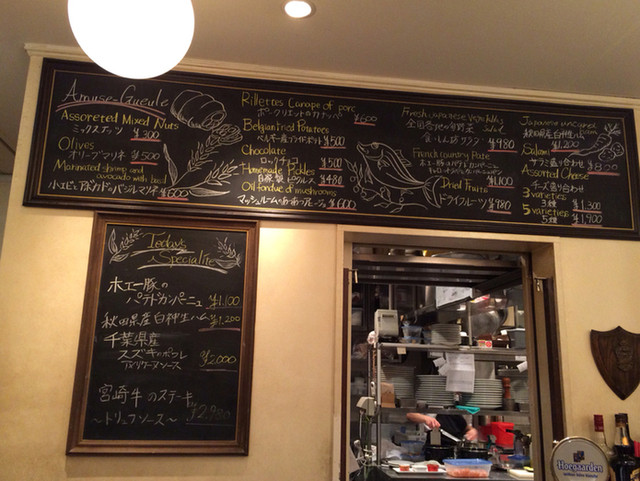 Amuse-Gueule
Assoreted Mixed Nuts
ミックスナッツ ¥300
Olives
オリーブマリネ ¥500
Marinated shrimp and
avocado with basil
小エビとアボカドのバジルマリネ ¥600
Rillettes Canape of porc
ポークリエットのカナッペ ¥600
Belgian Fried Potatoes
ベルギー産フライドポテト ¥500
Chocolate
ロックチョコ ¥500
Homemade Pickles
自家製ピクルス ¥480
Oil fondue of mushrooms
マッシュルームのアヒージョ ¥600
Fresh Japanese Vegetables
Salad
サラダ ¥980
French country Pate
¥1,100
Dried Fruits
ドライフルーツ ¥980
Japanese
¥1,200
Salami
サラミ盛り合わせ ¥800
Assorted Cheese
チーズ盛り合わせ
3 varieties
3種 ¥1,300
5 varieties
5種 ¥1,900
Today's
Specialite
ホエー豚の
パテドカンパーニュ ¥1,100
秋田県産白神生ハム ¥1,200
千葉県産
スズキのポワレ
アメリケーヌソース ¥2,000
宮崎牛のステーキ
〜トリュフソース〜 ¥2,980
Hoegaarden